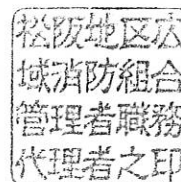 松阪地区広
域消防組合
管理者職務
代理者之印